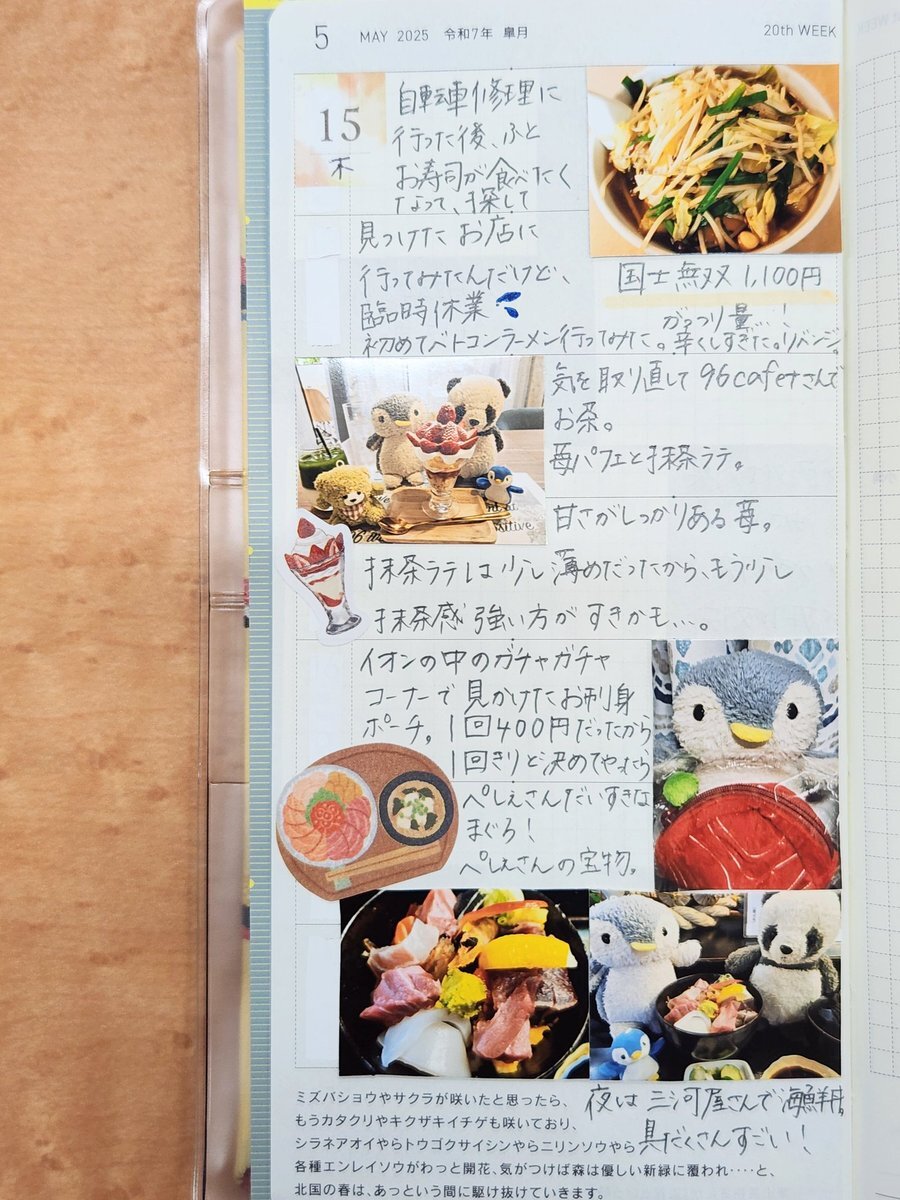 5 MAY 2025 令和7年 皐月 20th WEEK
15
木
自転車修理に
行った後、ふと
お寿司が食べたく
なって、探して
見つけたお店に
行ってみたんだけど、
臨時休業
国士無双 1,100円
がっつり量…!
初めてベトコンラーメン行ってみた。辛くしすぎた。リベンジ。
気を取り直して96cafeさんで
お茶。
苺パフェと抹茶ラテ。
甘さがしっかりある苺。
抹茶ラテは少し薄めだったから、もう少し
抹茶感強い方がすきかも…。
イオンの中のガチャガチャ
コーナーで見かけたお刺身
ポーチ。1回400円だったから
1回きりと決めてやったら
ぺしぇさんだいすきな
まぐろ!
ぺしぇさんの宝物。
夜は三河屋さんで海鮮丼。
具だくさんすごい!
ミズバショウやサクラが咲いたと思ったら、
もうカタクリやキクザキイチゲも咲いており、
シラネアオイやらトウゴクサイシンやらニリンソウやら
各種エンレイソウがわっと開花、気がつけば森は優しい新緑に覆われ‥‥と、
北国の春は、あっという間に駆け抜けていきます。